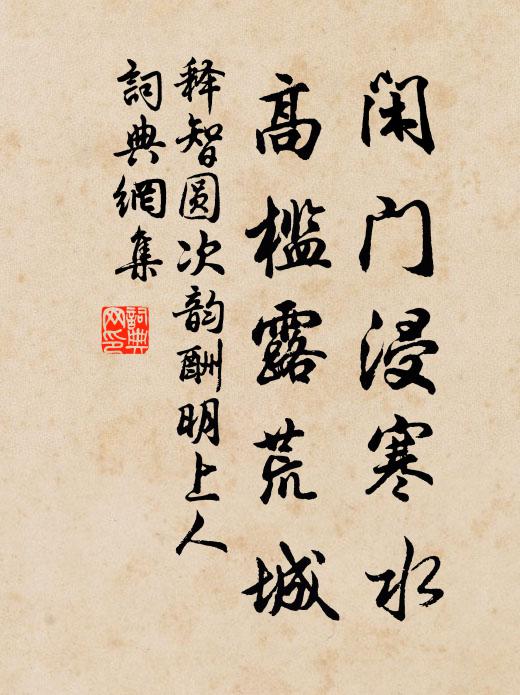 闲门浸寒水
高槛露荒城
释智圆次韵酬明上人
詞典網集
詞典
网印